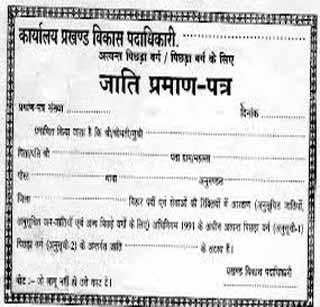 कार्यालय प्रखण्ड विकास पदाधिकारी.
अत्यन्त पिछड़ा वर्ग / पिछड़ा वर्ग के लिए
जाति प्रमाण-पत्र
प्रमाण-पत्र संख्या दिनांक
प्रमाणित किया जाता है कि श्री/श्रीमती/सुश्री
पिता/पति श्री पता ग्राम/महल्ला
पोस्ट थाना अनुमण्डल
जिला बिहार पदों एवं सेवाओं की रिक्तियों में आरक्षण (अनुसूचित जातियों,
अनुसूचित जन-जातियों एवं अन्य पिछड़े वर्गों के लिए) अधिनियम 1991 के अधीन अत्यन्त पिछड़ा वर्ग (अनुसूची-1)
पिछड़ा वर्ग (अनुसूची-2) के अन्तर्गत जाति के सदस्य हैं।
प्रखण्ड विकास पदाधिकारी
नोट :- जो लागू नहीं हो उसे काट दें।